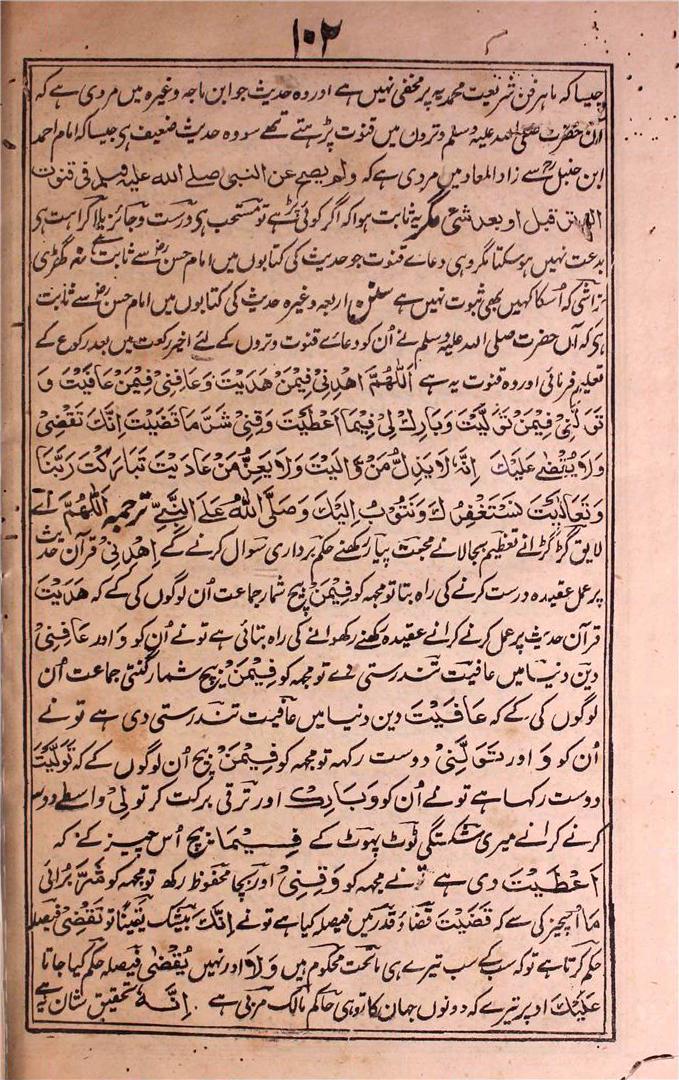 ۱۰۲
جیسا کہ ماہر فن شریعت محمدیہ پر مخفی نہیں ہے اور وہ حدیث جو ابن ماجہ وغیرہ میں مروی ہے کہ
آن حضرت صلی اللہ علیہ وسلم وتروں میں قنوت پڑہتے تھے سو وہ حدیث ضعیف ہی جیسا کہ امام احمد
ابن حنبل رح سے زاد المعاد میں مروی ہے کہ ولم یصح عن النبی صلے اللہ علیہ وسلم فی قنوت
الوتر قبل او بعد شئ مگر یہ ثابت ہوا کہ اگر کوئی پڑہے تو مستحب ہی درست وجائز بلا کراہت ہی
بدعت نہیں ہو سکتا مگر وہی دعاے قنوت جو حدیث کی کتابوں میں امام حسن رض سے ثابت ہے نہ گھڑی
تراشی کہ اُسکا کہیں بھی ثبوت نہیں ہے سنن اربعہ وغیرہ حدیث کی کتابوں میں امام حسن رض سے ثابت
ہی کہ آں حضرت صلی اللہ علیہ وسلم نے اُن کو دعاے قنوت وتروں کے لئے اخیر رکعت میں بعد رکوع کے
تعلیم فرمائی اور وہ قنوت یہ ہے اَللّٰهُمَّ اهْدِنِیْ فِیْمَنْ هَدَیْتَ وَعَافِنِیْ فِیْمَنْ عَافَیْتَ وَ
تَوَلَّنِیْ فِیْمَنْ تَوَلَّیْتَ وَبَارِكْ لِیْ فِیْمَا اَعْطَیْتَ وَقِنِیْ شَرَّ مَا قَضَیْتَ اِنَّكَ تَقْضِیْ
وَلَا یُقْضٰے عَلَیْكَ اِنَّهٗ لَا یَذِلُّ مَنْ وَّالَیْتَ وَلَا یَعِزُّ مَنْ عَادَیْتَ تَبَارَكْتَ رَبَّنَا
وَتَعَالَیْتَ نَسْتَغْفِرُكَ وَنَتُوْبُ اِلَیْكَ وَصَلَّی اللّٰهُ عَلَے النَّبِیِّ ترجمہ اَللّٰهُمَّ اے
لایق گڑگڑانے تعظیم بجالانے محبت پیار رکھنے حکم برداری سوال کرنے کے اِهْدِنِیْ قرآن حدیث
پر عمل عقیدہ درست کرنے کی راہ بتا تو مجہہ کو فِیْمَنْ بیچ شمار جماعت اُن لوگوں کی کے کہ هَدَیْتَ
قرآن حدیث پر عمل کرنے کرانے عقیدہ رکھنے رکھوانے کی راہ بتائی ہے تو نے اُن کو وَ اور عَافِنِیْ
دین دنیا میں عافیت تندرستی دے تو مجہہ کو فِیْمَنْ بیچ شمار گنتی جماعت اُن
لوگوں کی کے کہ عَافَیْتَ دین دنیا میں عافیت تندرستی دی ہے تو نے
اُن کو وَ اور تَوَلَّنِیْ دوست رکہہ تو مجہہ کو فِیْمَنْ بیچ اُن لوگوں کے کہ تَوَلَّیْتَ
دوست رکہا ہے تو نے اُن کو وَ بَارِكْ اور ترقی برکت کر تو لِیْ واسطے
کرنے کرانے میری شکستگی ٹوٹ پہوٹ کے فِیْمَا بیچ اُس چیز کے کہ
اَعْطَیْتَ دی ہے تو نے مجہہ کو وَقِنِیْ اور بچا محفوظ رکھ تو مجہہ کو شَرَّ بُرائی
مَا اُس چیز کی سے کہ قَضَیْتَ قضاؤ قدر میں فیصلہ کیا ہے تو نے اِنَّكَ بیشک یقیناً تو تَقْضِیْ فیصلہ
حکم کرتا ہے تو کہ سب کے سب تیرے ہی ماتحت محکوم ہیں وَلَا اور نہیں یُقْضٰی فیصلہ حکم کیا جاتا
عَلَیْكَ اوپر تیرے کہ دونوں جہان کا تو ہی حاکم مالک مربی ہے اِنَّهٗ تحقیق شان یہ ہے